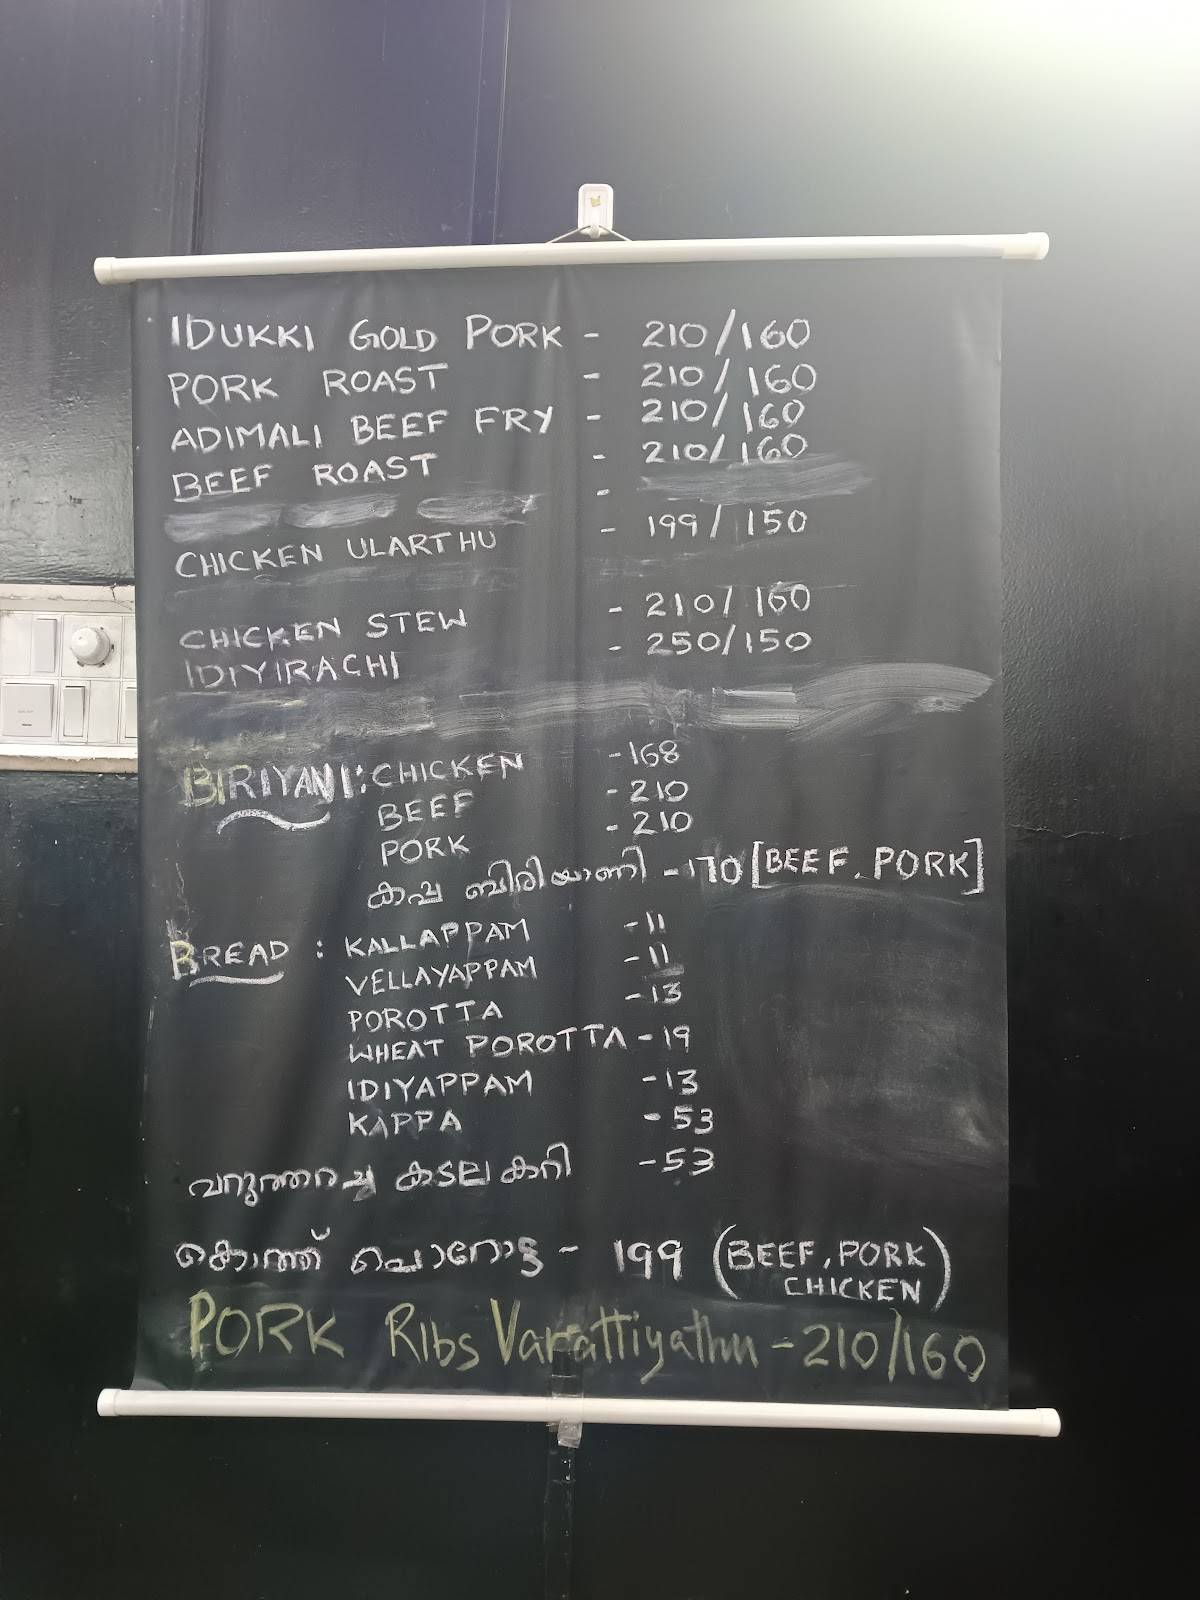 IDUKKI GOLD PORK - 210/160
PORK ROAST - 210/160
ADIMALI BEEF FRY - 210/160
BEEF ROAST - 210/160
-
CHICKEN ULARTHU - 199/150
CHICKEN STEW - 210/160
IDIYIRACHI - 250/150
BIRIYANI: CHICKEN -168
BEEF -210
PORK -210
കപ്പ ബിരിയാണി -170 [BEEF, PORK]
BREAD : KALLAPPAM -11
VELLAYAPPAM -11
POROTTA -13
WHEAT POROTTA -19
IDIYAPPAM -13
KAPPA -53
വറുത്തരച്ച കടല കറി -53
കൊത്ത് പൊറോട്ട - 199 (BEEF, PORK
CHICKEN)
PORK RIbs Varattiyathu -210/160